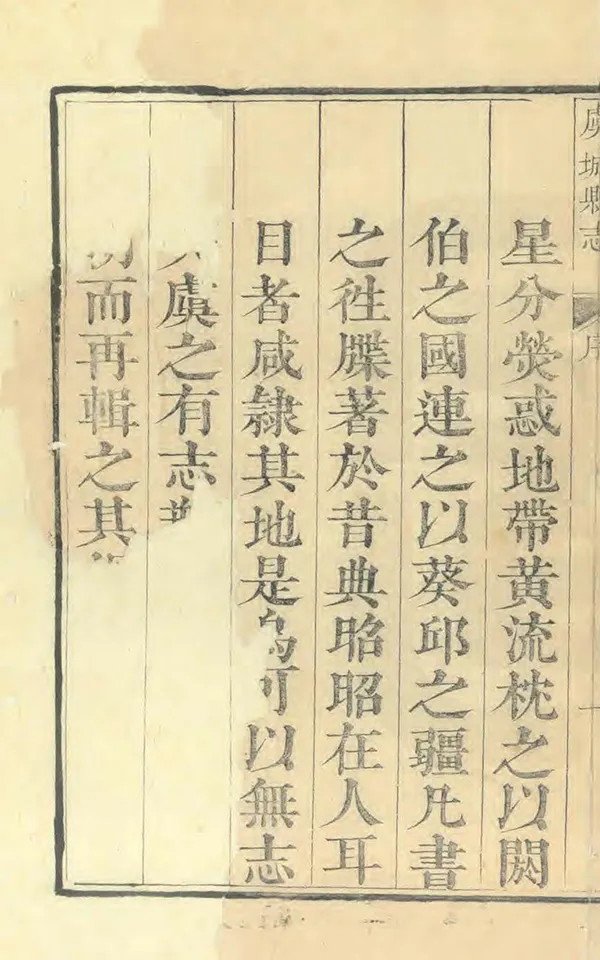 虞城縣志
序
星分熒惑地帶黃流枕之以閼
伯之國連之以葵邱之疆凡書
之徃牒著於昔典昭昭在人耳
目者咸隷其地是烏可以無志
虞之有志
而再輯之其